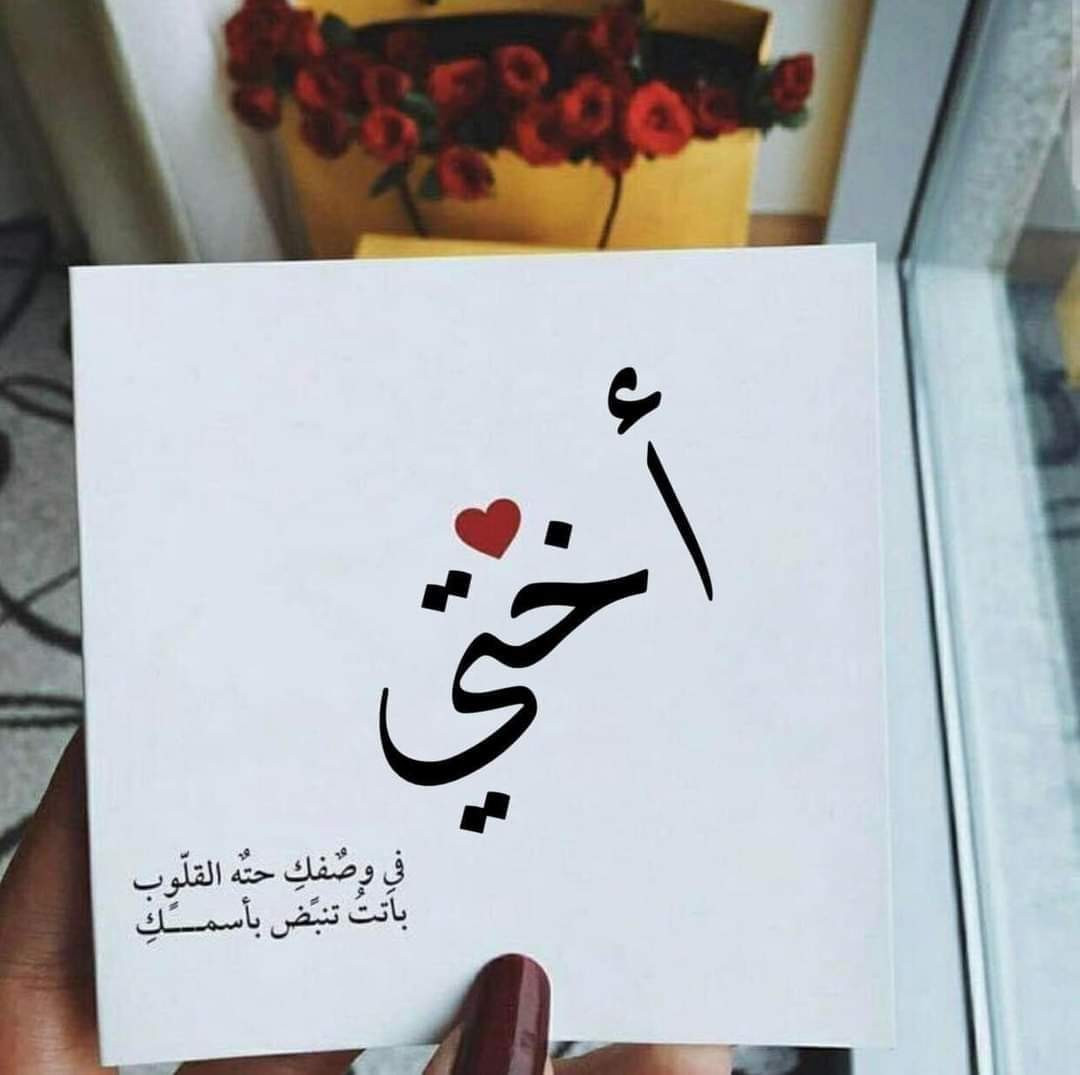 أختي
في وصٌفكِ حتهٌ القلّوب
باتتُ تنبًض بأسمـــكًِ